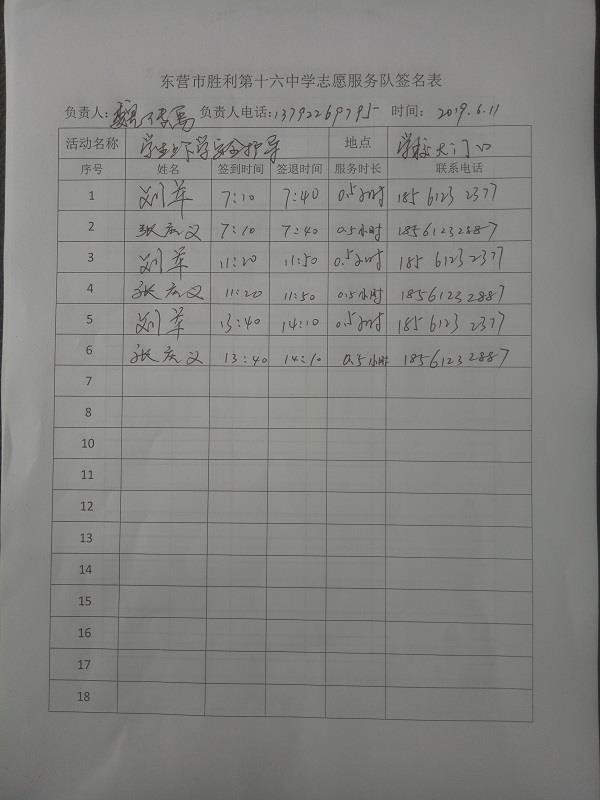 东营市胜利第十六中学志愿服务队签名表
负责人: 负责人电话:13792269795 时间: 2019.6.11
活动名称 学生上下学安全护导 地点 学校大门口
序号 姓名 签到时间 签退时间 服务时长 联系电话
1 刘军 7:10 7:40 0.5小时 185 6123 2377
2 张庆义 7:10 7:40 0.5小时 18561232887
3 刘军 11:20 11:50 0.5小时 185 6123 2377
4 张庆义 11:20 11:50 0.5小时 18561232887
5 刘军 13:40 14:10 0.5小时 185 6123 2377
6 张庆义 13:40 14:10 0.5小时 18561232887
7
8
10
11
12
13
14
15
16
17
18